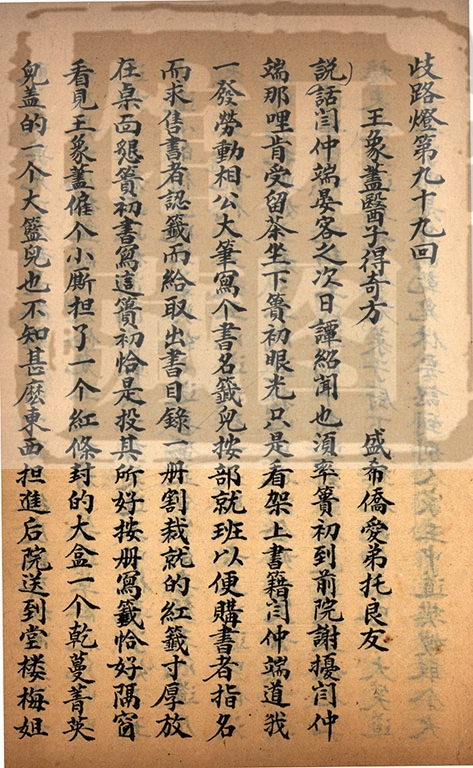 歧路燈第九十九回
王象藎醫子得奇方 盛希僑愛弟托良友
說話閆仲端晏客之次日譚紹聞也湏率簣初到前院謝擾閆仲
端那哩肯受留茶坐下簣初眼光只是看架上書籍閆仲端道我
一發勞動相公大筆寫个書名籤兒按部就班以便購書者指名
而求售書者認籤而給取出書目錄一册割裁就的紅籤寸厚放
在桌面懇簣初書寫這簣初恰是投其所好按册寫籤恰好隔窗
看見王象藎僱个小厮担了一个紅條封的大盒一个乾蔓菁英
兒盖的一个大籃兒也不知甚麽東西担進后院送到堂楼梅姐